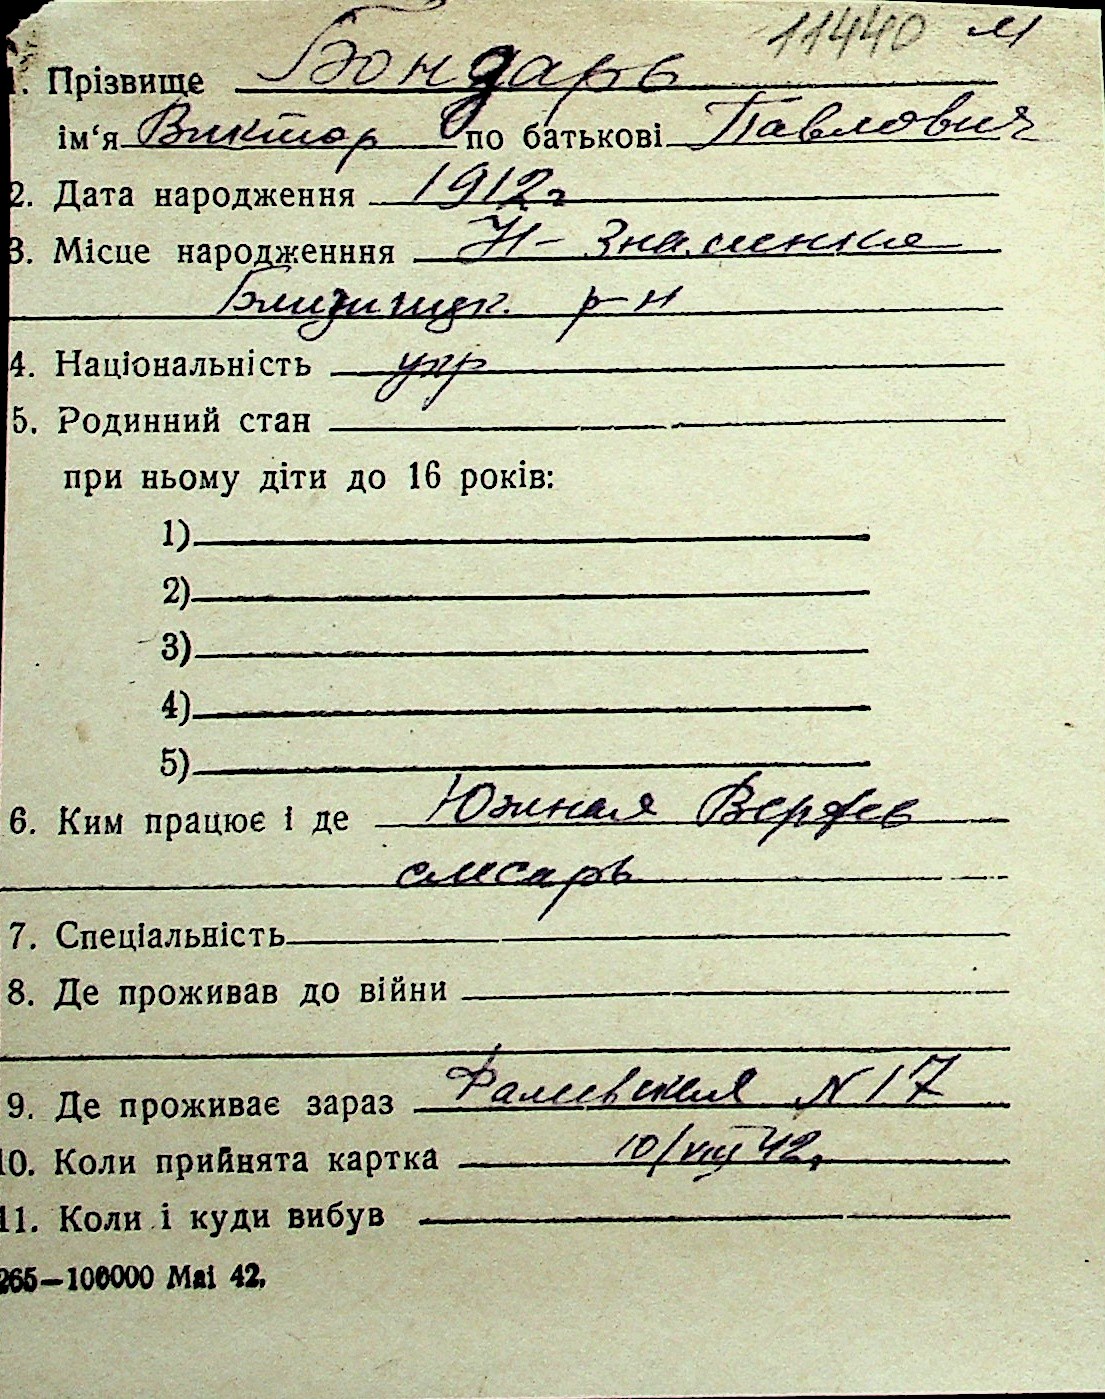 11440 М
1. Прізвище Бондарь
ім‘я Виктор по батькові Павлович
2. Дата народження 1912 г
3. Місце народженння Н - Знаменка
р-н
4. Національність укр
5. Родинний стан
при ньому діти до 16 років:
1)
2)
3)
4)
5)
6. Ким працює і де Южная Верфь
слесарь
7. Спеціальність
8. Де проживав до війни
9. Де проживає зараз Фалиевская N 17
10. Коли прийнята картка 10/VIII 42.
11. Коли і куди вибув
265—100000 Mai 42.